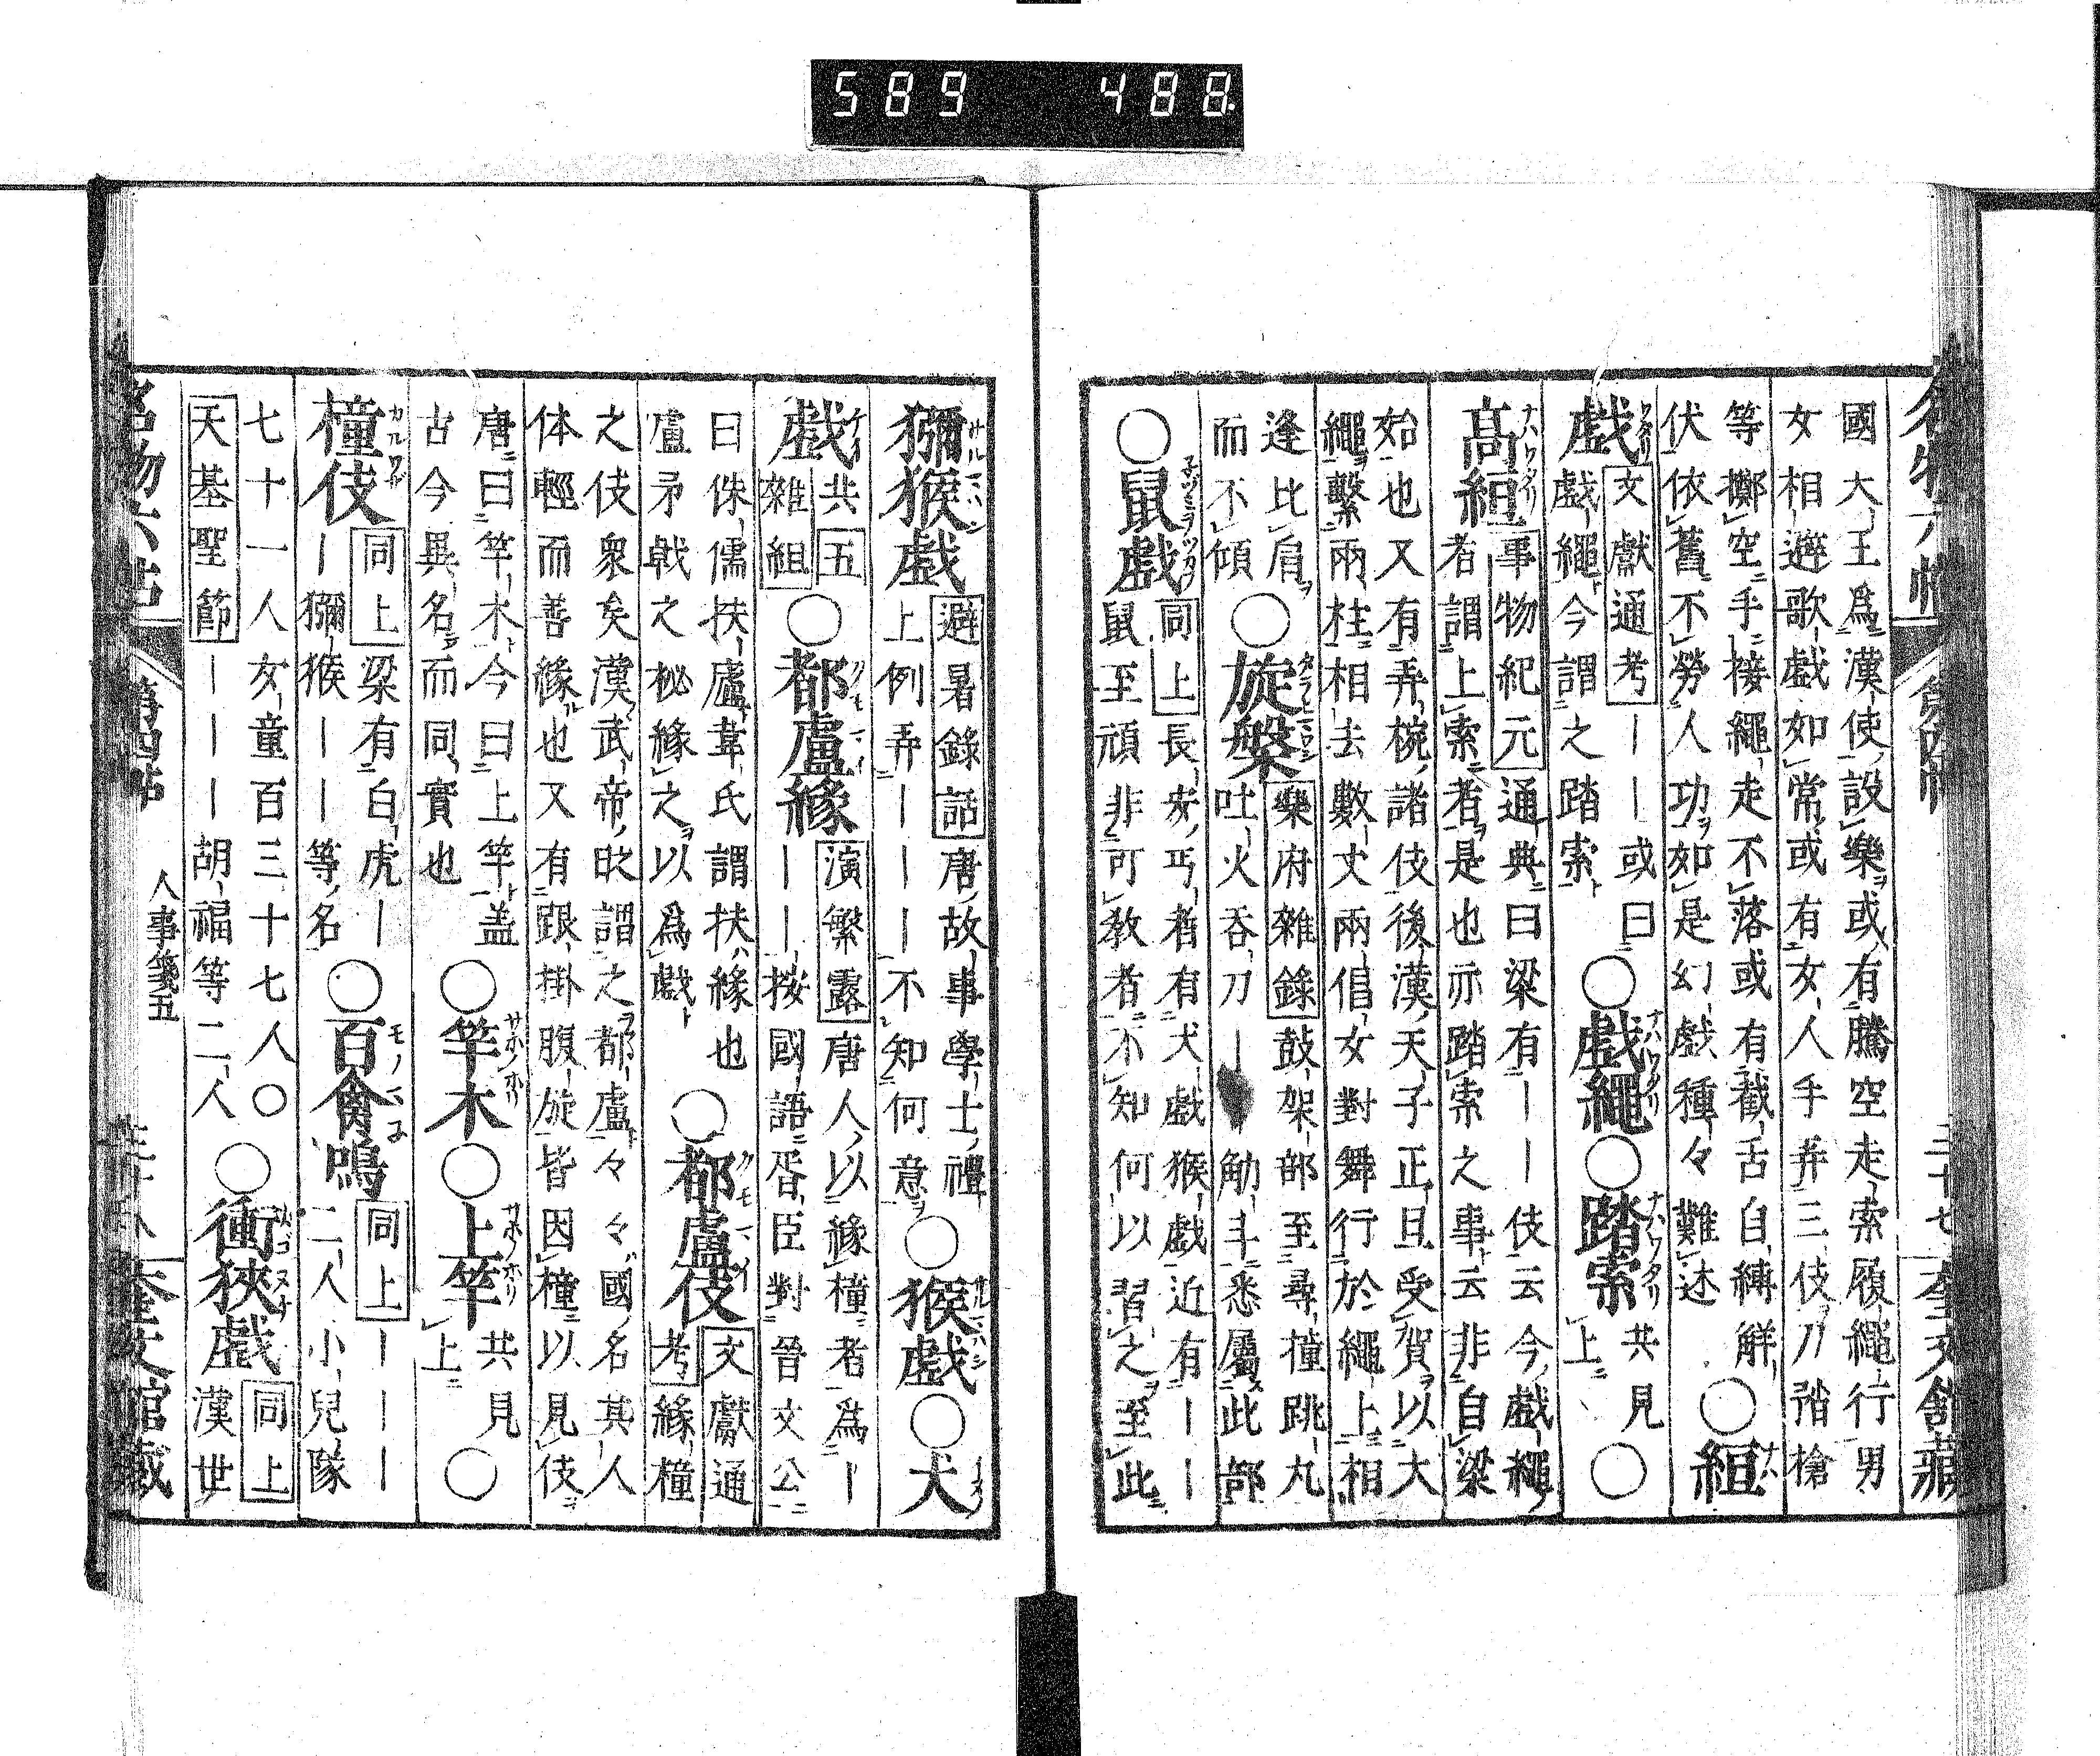 589 488
名物六帖 第四帖 三十七 奎文舘藏
國大王爲漢使設樂或有騰空走索履繩行男
女相避歌戲如常或有女人手弄三伎刀矟槍
等擲空手接繩走不落或有截舌自縛解
伏依舊不勞人功如是幻戲種々難述
○絙
戲
文獻通考｜｜或曰
戲繩今謂之踏索
○戲繩○踏索
共見
上
○
高絙
事物紀元通典曰梁有｜｜伎云今戲繩
者謂上索者是也亦踏索之事云非自梁
始也又有弄椀諸伎後漢天子正旦受賀以大
繩繫兩柱相去數丈兩倡女對舞行於繩上相
逢比肩
而不傾
○旋槃
樂府雜錄鼓架部至尋撞跳丸
吐火吞刀｜　觔斗悉屬此部
○鼠戲
同上長安丐者有犬戲猴戲近有｜｜
鼠至頑非可敎者不知何以習之至此
獼猴戲
避暑錄話唐故事學士禮
上例弄｜｜｜不知何意
○猴戲○犬
戲
共五
雜組
○都盧緣
演繁露唐人以緣橦者爲｜
｜｜按國語胥臣對晉文公
曰侏儒扶盧韋氏謂扶緣也
盧矛戟之柲緣之以爲戲
○都盧伎
文獻通
考緣橦
之伎衆矣漢武帝時謂之都盧々々國名其人
体輕而善緣也又有跟掛腹旋皆因橦以見伎
唐曰竿木今曰上竿盖
古今異名而同實也
○竿木○上竿
共見
上
○
橦伎
同上梁有白虎｜
｜獼猴｜｜等名
○百禽鳴
同上｜｜｜
二人小兒隊
七十一人女童百三十七人○
天基聖節｜｜｜胡福等二人
○衝狹戲
同上
漢世
名物六帖 第四帖 人事箋五 三十八 奎文舘藏